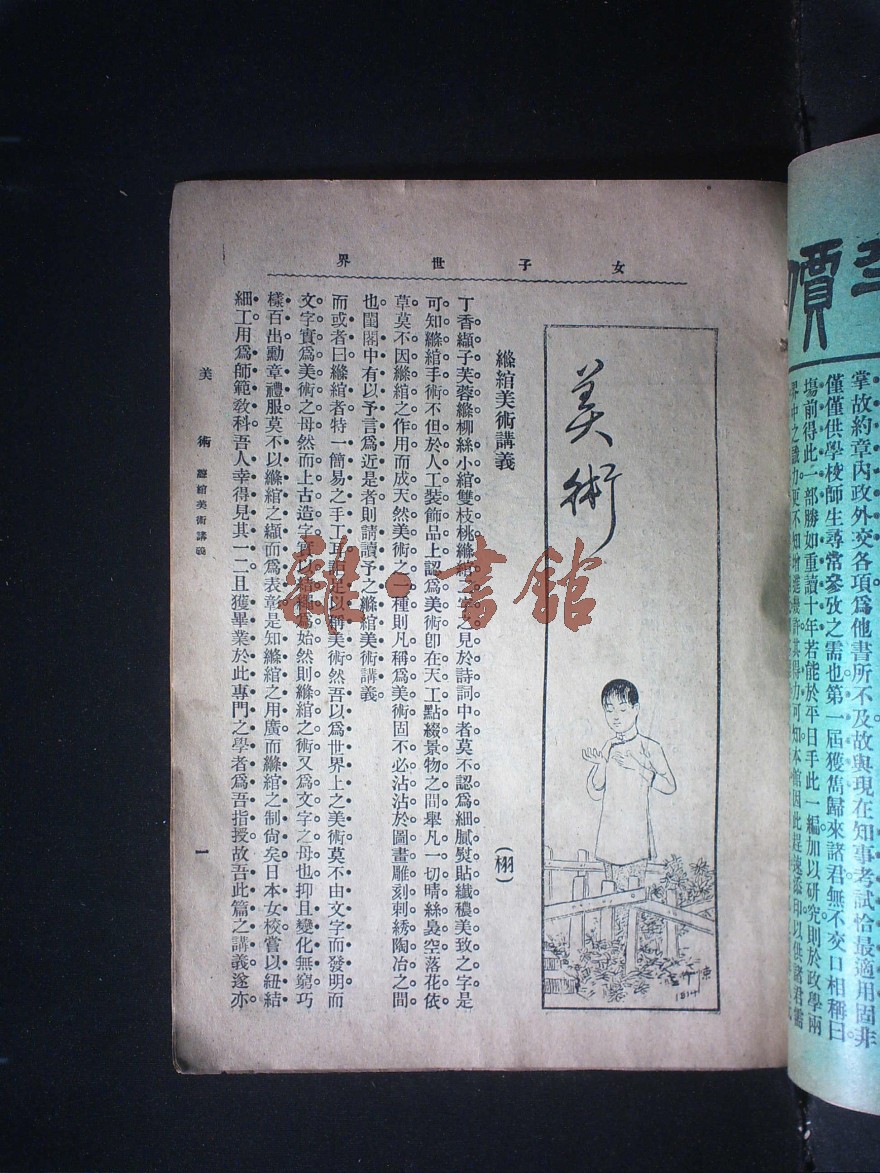 女子世界
美術
1914
縧綰美術講義
(栩)
丁香纈子芙蓉縧柳絲小綰雙枝桃縧綰之字之見於詩詞中者莫不認爲細膩熨貼纖穠美致之字是
可知縧綰手術不但於人工裝飾品上認爲美術卽在天工點綴景物之間舉凡一切晴絲裊空落花依
草莫不因縧綰之作用而成天然美術之一種則凡稱爲美術固不必沾沾於圖畫雕刻刺綉陶冶之間
也閨閣中有以予言爲近是者則請讀予之縧綰美術講義
而或者曰縧綰者特一簡易之手工耳 足以稱美術然吾以爲世界上之美術莫不由文字而發明而
文字實爲美術之母然而上古造字實以結繩爲始然則縧綰之術又爲文字之母也抑且變化無窮巧
樣百出勳章禮服莫不以縧綰之纈而爲表彰是知縧綰之用廣而縧綰之制尙矣日本女校嘗以紐結
細工用爲師範敎科吾人幸得見其一二且獲畢業於此專門之學者爲吾指授故吾此篇之講義遂亦
美術 縧綰美術講義
一
雜·書館
價
掌故約章內政外交各項爲他書所不及故與現在知事考試恰最適用固非
僅僅供學校師生尋常參攷之需也第一屆獲雋歸來諸君無不交口相稱曰
塲前得此一部勝如重讀十年若能於平日手此一編加以研究則於政學兩
界中之識力更不知增進幾許其得力可知本館因此趕速添印以供諸君需